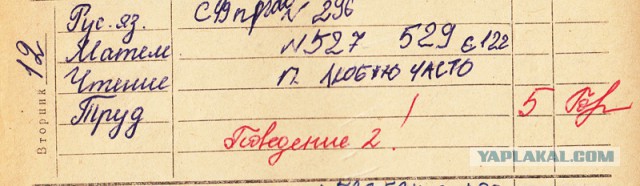 12
Вторник
Рус. яз. с 49 № 296
Матем № 527 529 с 122
Чтение П. ЧАСТО
Труд 5
Поведение 2!
YAPLAKAL.COM